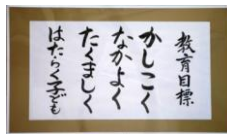 教育目標
かしこく
なかよく
たくましく
はたらく子ども